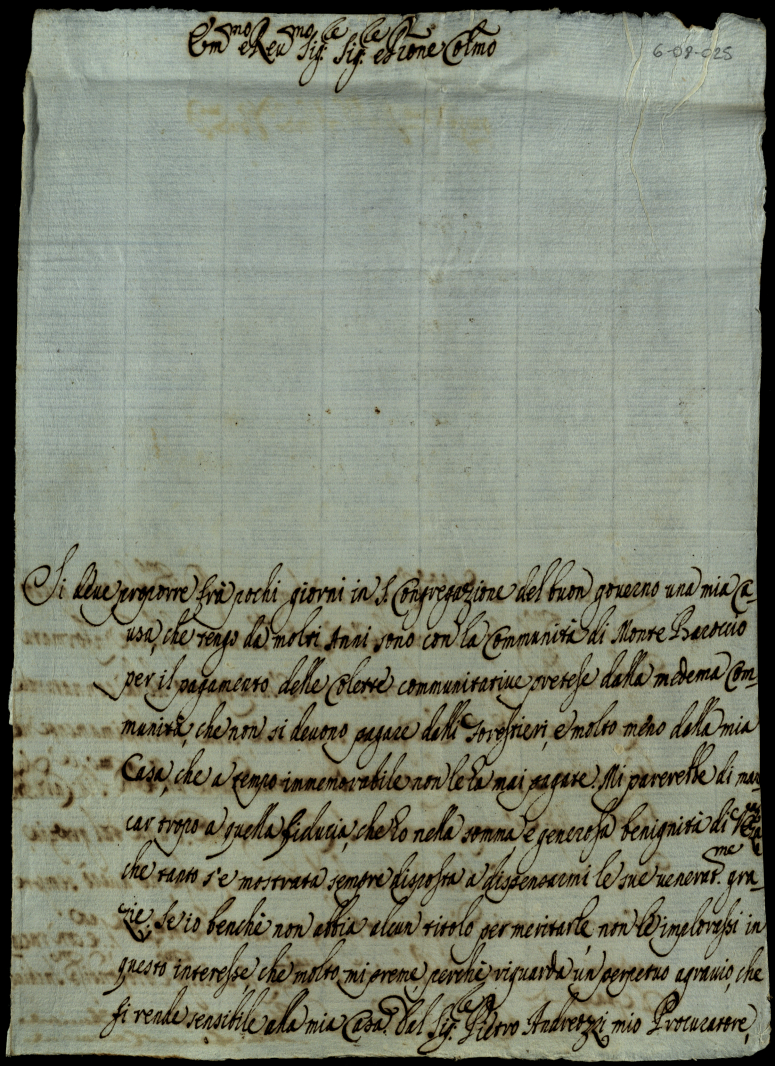 Em.mo e Reu.mo Sig.re Sig.re e Pñone Col.mo
6-08-025
Si deue proporre frà pochi giorni in S. Congregazione del buon gouerno una mia Ca-
usa, che tengo da molti Anni sono con la Communità di Monte Baroccio
per il pagamento delle Colette communitatiue pretese dalla medema Com-
munità, che non si deuono pagare dalli Forestieri, e molto meno dalla mia
Casa, che a tempo immemorabile non le hà mai pagate. Mi parerebbe di man
car tropo a quella fiducia, che hò nella somma, e generosa benignità di
che tanto s'è mostrata sempre disposta a dispensarmi le sue venerat.me gra-
zie, se io benchè non abbia alcun titolo per meritarle, non le implorassi in
questo interesse, che molto mi preme, perchè riguarda un perpetuo agrauio, che
si rende sensibile alla mia Casa. dal Sig.re Pietro Andreozzi mio Procuratore,